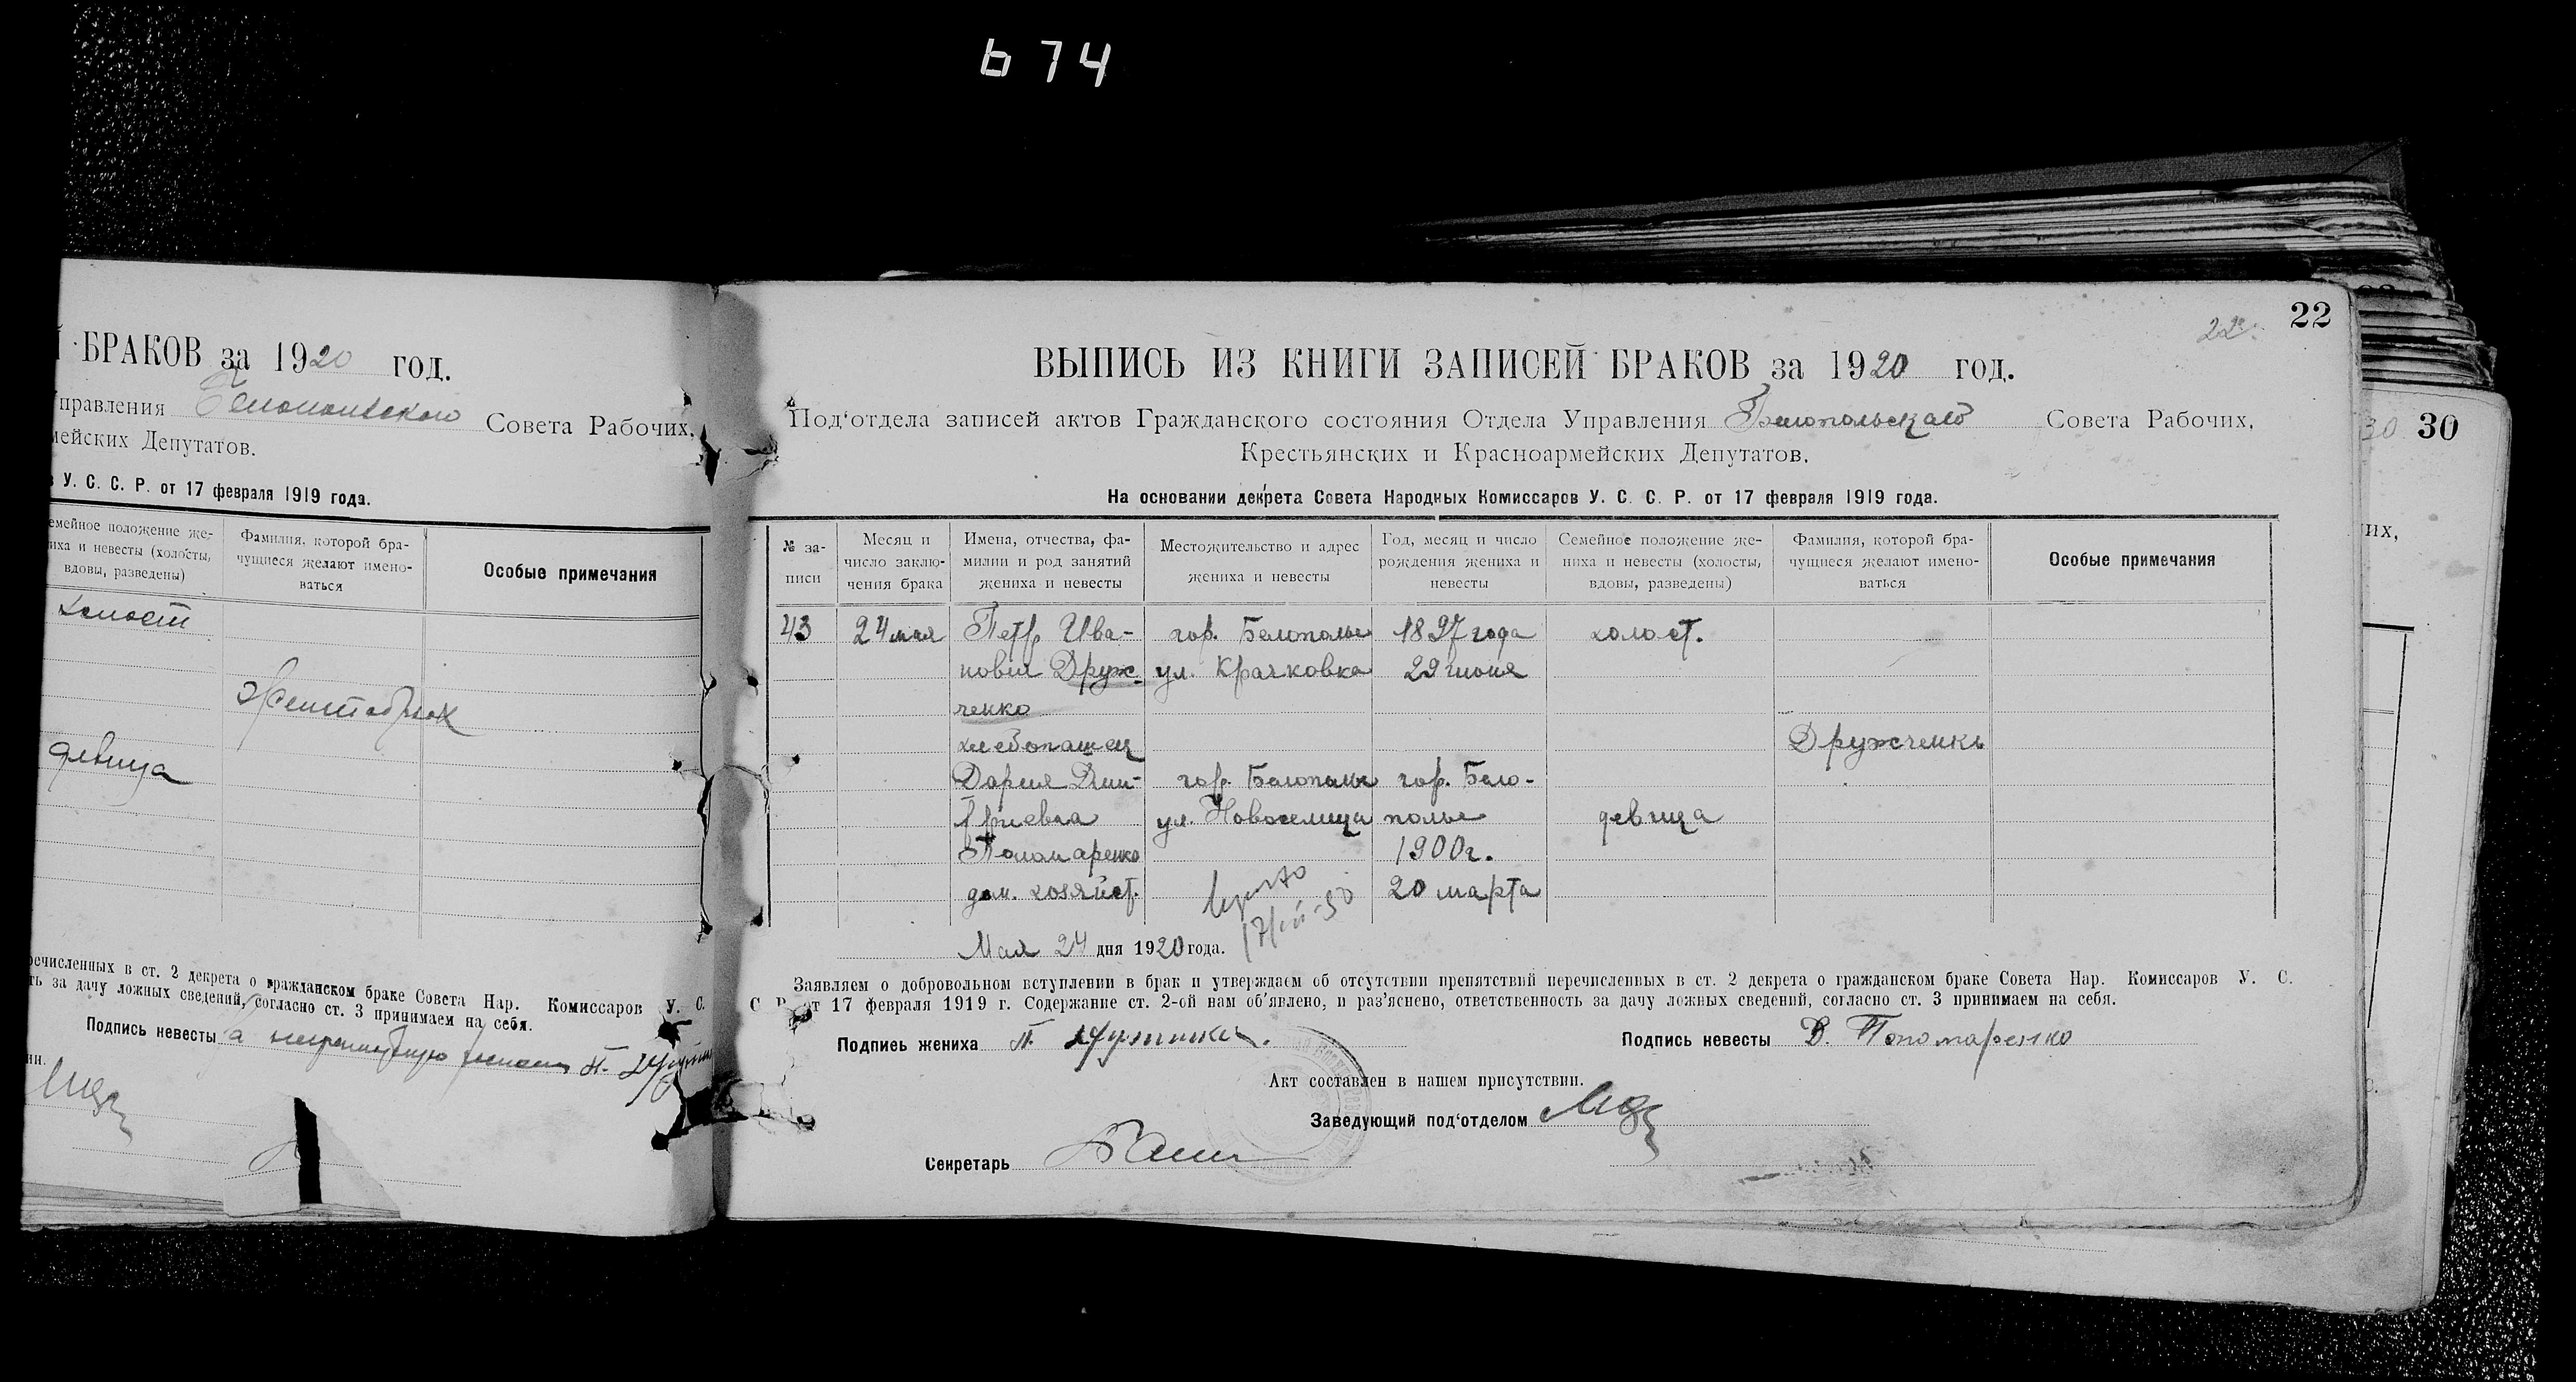 674
БРАКОВ за 1920 год.
правления Белопольского Совета Рабочих,
мейских Депутатов.
У. С. С. Р. от 17 февраля 1919 года.
емейное положение же-
иха и невесты (холосты,
вдовы, разведены)
Фамилия, которой бра-
чущиеся желают имено-
ваться
Особые примечания
холост
девица
речисленных в ст. 2 декрета о гражданском браке Совета Нар. Комиссаров У. С.
ть за дачу ложных сведений, согласно ст. 3 принимаем на себя.
Подпись невесты а неграмотную
ии.
22
22
ВЫПИСЬ ИЗ КНИГИ ЗАПИСЕЙ БРАКОВ за 1920 год.
Под‘отдела записей актов Гражданского состояния Отдела Управления Белопольскаго Совета Рабочих,
Крестьянских и Красноармейских Депутатов.
На основании декрета Совета Народных Комиссаров У. С. С. Р. от 17 февраля 1919 года.
№ за-
писи
Месяц и
число заклю-
чения брака
Имена, отчества, фа-
милии и род занятий
жениха и невесты
Местожительство и адрес
жениха и невесты
Год, месяц и число
рождения жениха и
невесты
Семейное положение же-
ниха и невесты (холосты,
вдовы, разведены)
Фамилия, которой бра-
чущиеся желают имено-
ваться
Особые примечания
43 24 мая Петр Ива- гор. Белополье 1897 года холост.
нович Друж- ул. Крачковка 29 июня
ченко
хлебопашец Дружченко
Дария Дми- гор. Белополье гор. Бело-
триевна ул. Новоселица полье девица
Пономаренко 1900г.
дом. хозяйст. 20 марта
Мая 24 дня 1920 года.
Заявляем о добровольном вступлении в брак и утверждаем об отсутствии препятствий перечисленных в ст. 2 декрета о гражданском браке Совета Нар. Комиссаров У. С.
С. Р. от 17 февраля 1919 г. Содержание ст. 2-ой нам об‘явлено, и раз‘яснено, ответственность за дачу ложных сведений, согласно ст. 3 принимаем на себя.
Подпись жениха П.
Подпись невесты Д. Пономаренко
Акт составлен в нашем присутствии.
Заведующий под‘отделом
Секретарь
30 30
их,